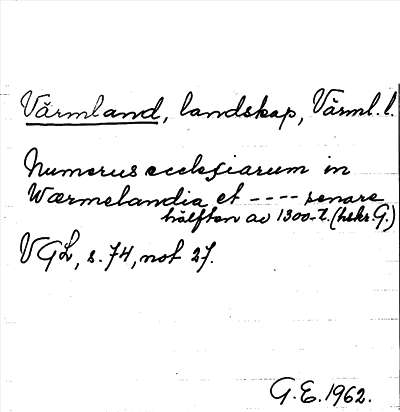 Värmland, landskap, Värml. l.
Numerus ecclesiarum in
Wærmelandia et ---- senare
hälften av 1300-t. (hskr. G.)
VGL, s. 74, not 27.
G.E. 1962.